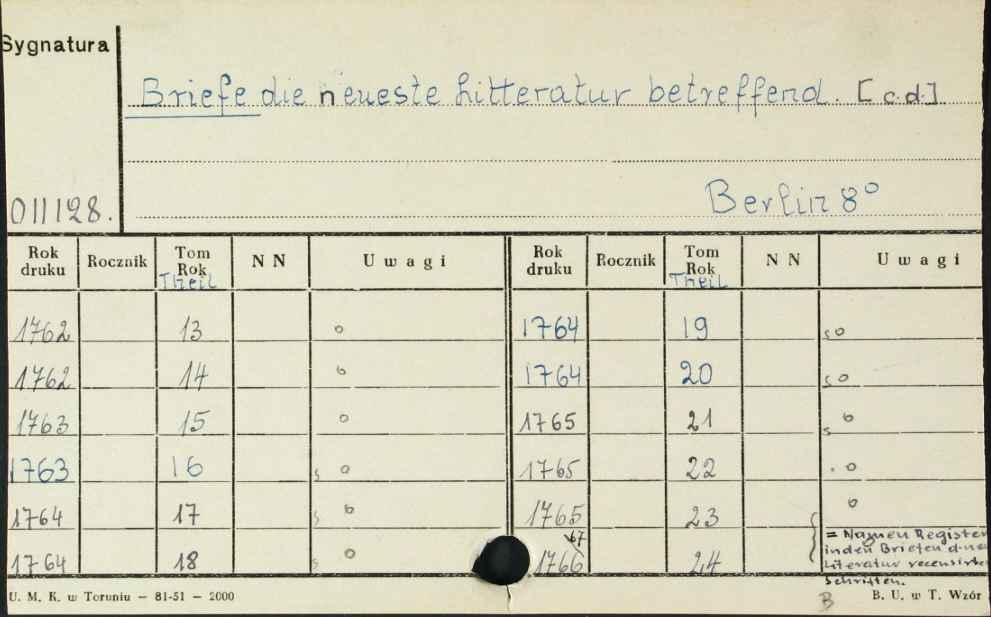 Sygnatura
Briefe die neueste Litteratur betreffend. [c.d.]
011128.
Berlin 8°
Rok druku Rocznik Tom Rok Theil NN Uwagi Rok druku Rocznik Tom Rok Theil NN Uwagi
1762 13 o 1764 19 s o
1762 14 o 1764 20 s o
1763 15 o 1765 21 s o
1763 16 s o 1765 22 . o
1764 17 s o 1765 23 o
1764 18 s o 1766 67 24
= Namen Register
in den Briefen d. ne
Literatur recensirte
Schriften.
U. M. K. w Toruniu — 81-51 — 2000
B
B. U. w T. Wzór